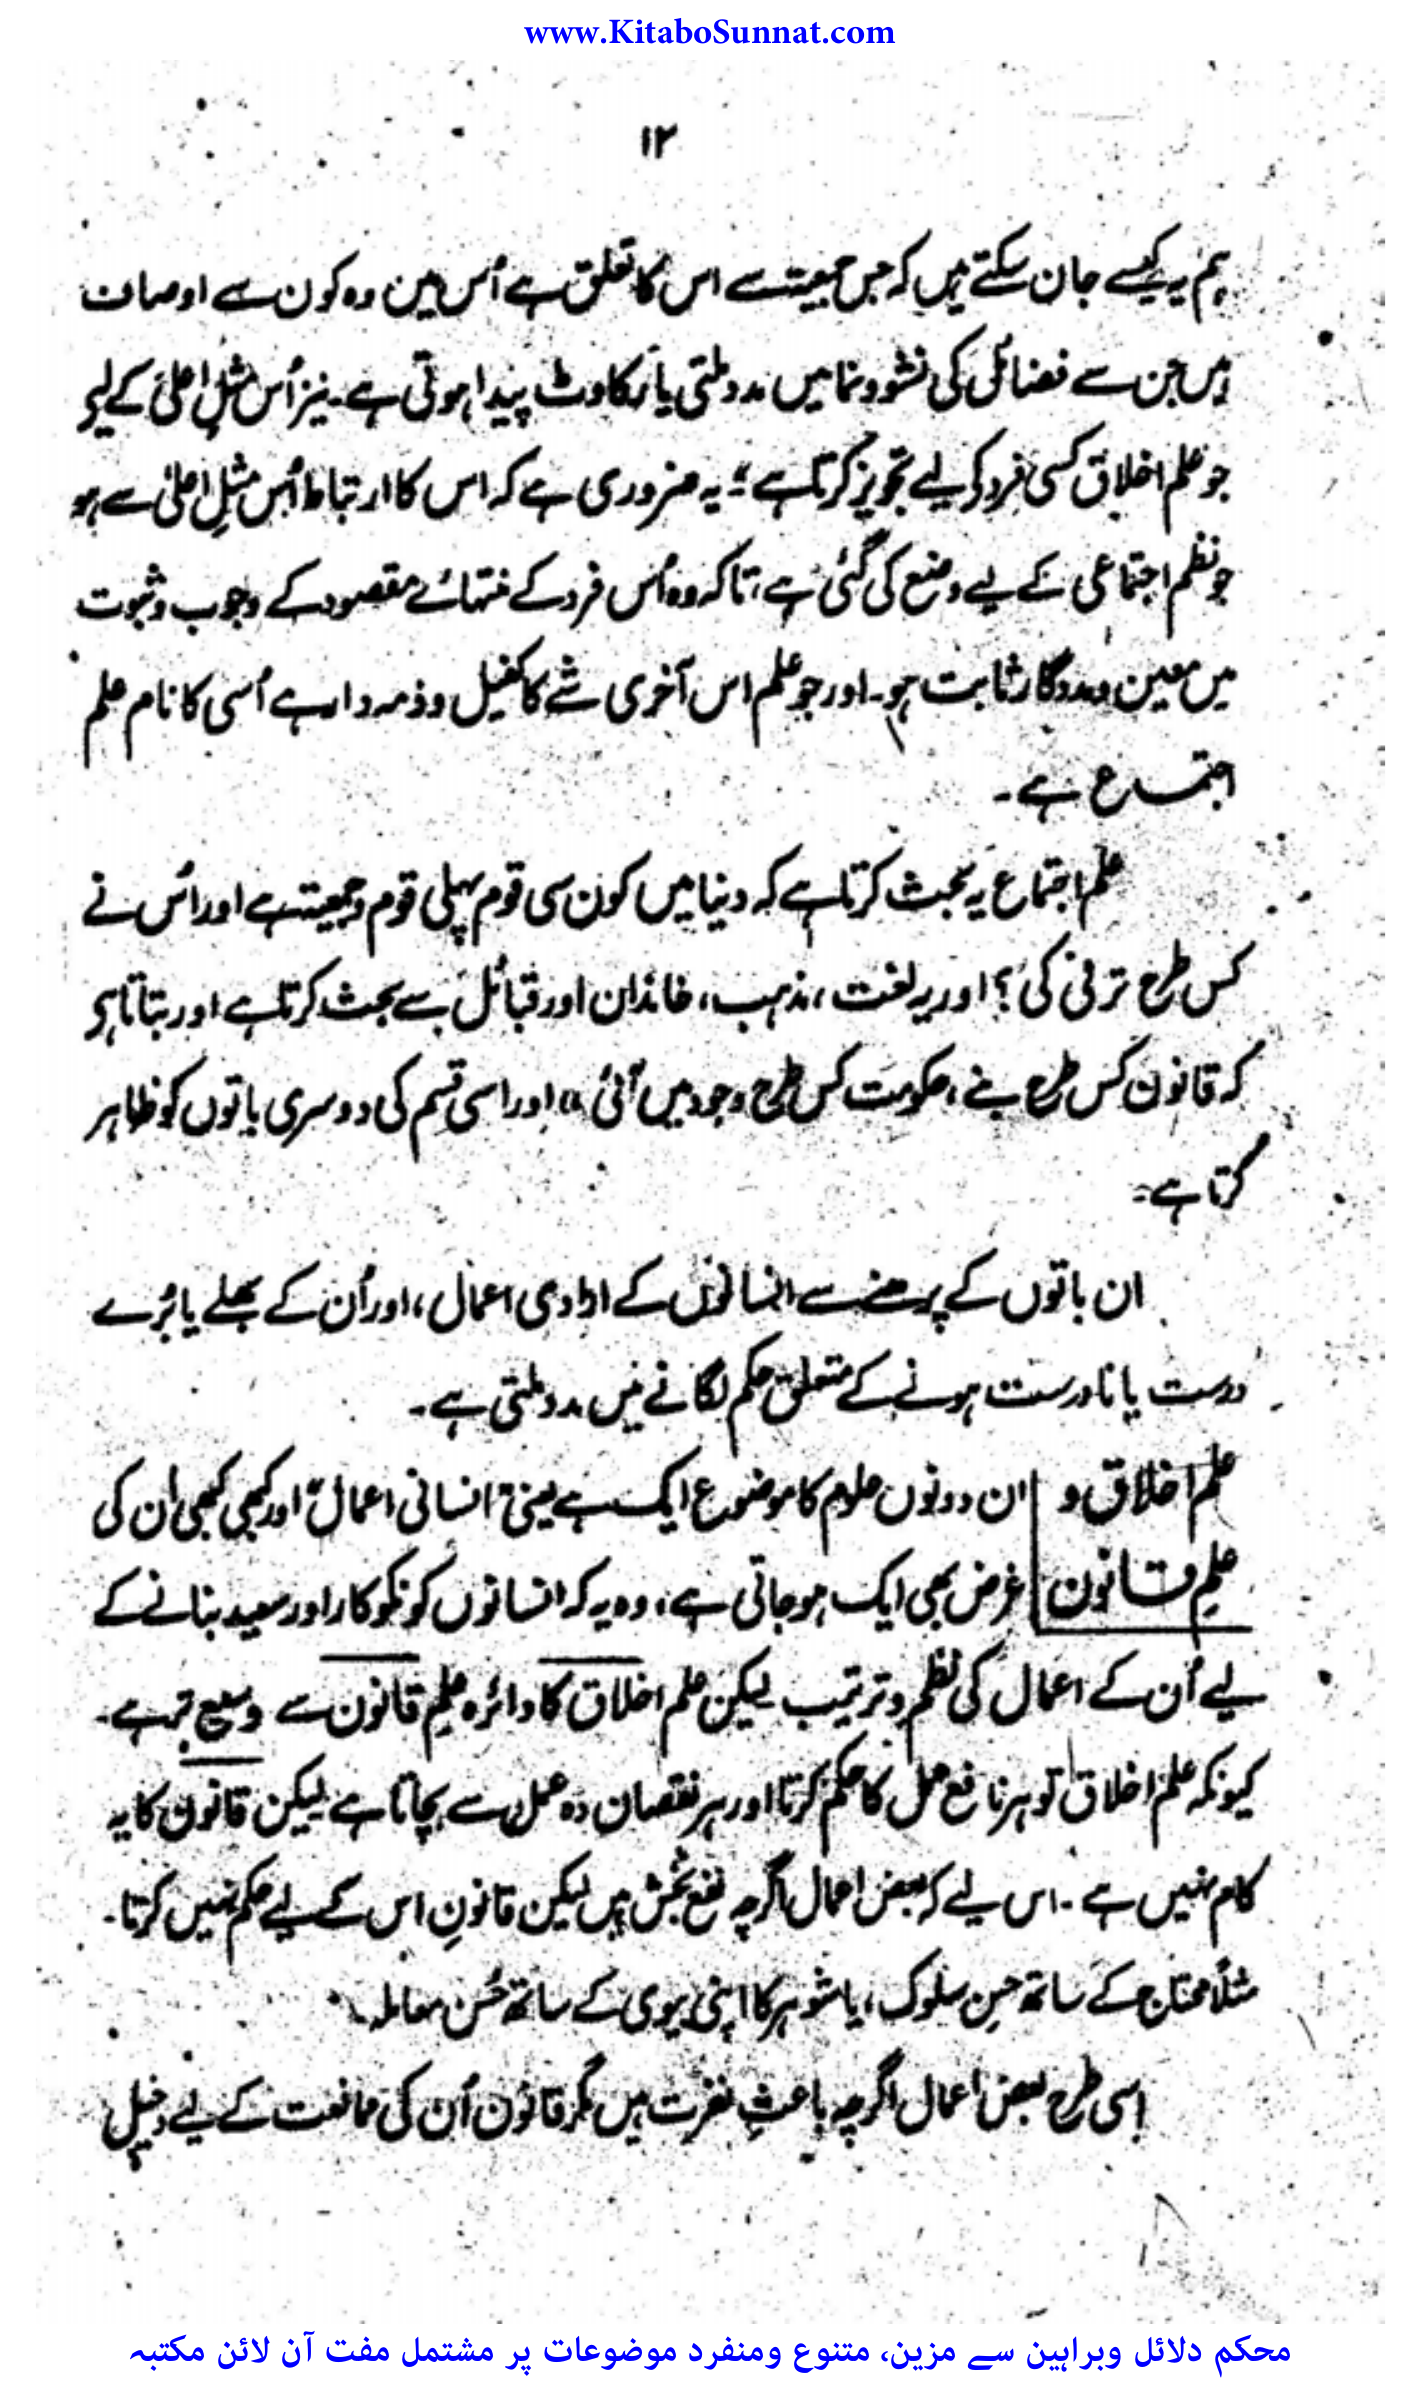 www.KitaboSunnat.com
۱۲
ہم یہ کیسے جان سکتے ہیں کہ جس جمعیۃ سے اس کا تعلق ہے اُس میں وہ کون سے اوصاف
ہیں جن سے فضائل کی نشوونما میں مدد ملتی یا رکاوٹ پیدا ہوتی ہے۔ نیز اُس مثلِ اعلیٰ کے لیے
جو علم اخلاق کسی فرد کے لیے تجویز کرتا ہے؛ یہ ضروری ہے کہ اس کا ارتباط اُس مثلِ اعلیٰ سے ہو
جو نظم اجتماعی کے لیے وضع کی گئی ہے، تاکہ وہ اُس فرد کے منتہائے مقصود کے وجوب و ثبوت
میں معین و مددگار ثابت ہو۔ اور جو علم اس آخری شے کا کفیل و ذمہ دار ہے اُسی کا نام علم
اجتماع ہے۔
علم اجتماع یہ بحث کرتا ہے کہ دنیا میں کون سی قوم پہلی قوم و جمعیۃ ہے اور اُس نے
کس طرح ترقی کی؟ اور یہ لغت، مذہب، خاندان اور قبائل سے بحث کرتا ہے اور بتاتا ہے
کہ قانون کس طرح بنے، حکومت کس طرح وجود میں آئی" اور اسی قسم کی دوسری باتوں کو ظاہر
کرتا ہے۔
ان باتوں کے پڑھنے سے انسانوں کے ارادی اعمال، اور اُن کے بھلے یا بُرے
درست یا نادرست ہونے کے متعلق حکم لگانے میں مدد ملتی ہے۔
علم اخلاق و ان دونوں علوم کا موضوع ایک ہے یعنی "انسانی اعمال" اور کبھی کبھی اُن کی
علمِ قانون غرض بھی ایک ہو جاتی ہے، وہ یہ کہ انسانوں کو نکوکار اور سعید بنانے کے
لیے اُن کے اعمال کی نظم و ترتیب لیکن علم اخلاق کا دائرہ علمِ قانون سے وسیع تر ہے۔
کیونکہ علم اخلاق تو ہر نافع عمل کا حکم کرتا اور ہر نقصان دہ عمل سے بچاتا ہے لیکن قانون کا یہ
کام نہیں ہے۔ اس لیے کہ بعض اعمال اگرچہ نفع بخش ہیں لیکن قانون اس کے لیے حکم نہیں کرتا۔
مثلاً محتاج کے ساتھ حسن سلوک، یا شوہر کا اپنی بیوی کے ساتھ حُسن معاملہ۔
اِسی طرح بعض اعمال اگرچہ باعثِ نفرت ہیں مگر قانون اُن کی ممانعت کے لیے دخیل
محکم دلائل وبراہین سے مزین، متنوع ومنفرد موضوعات پر مشتمل مفت آن لائن مکتبہ